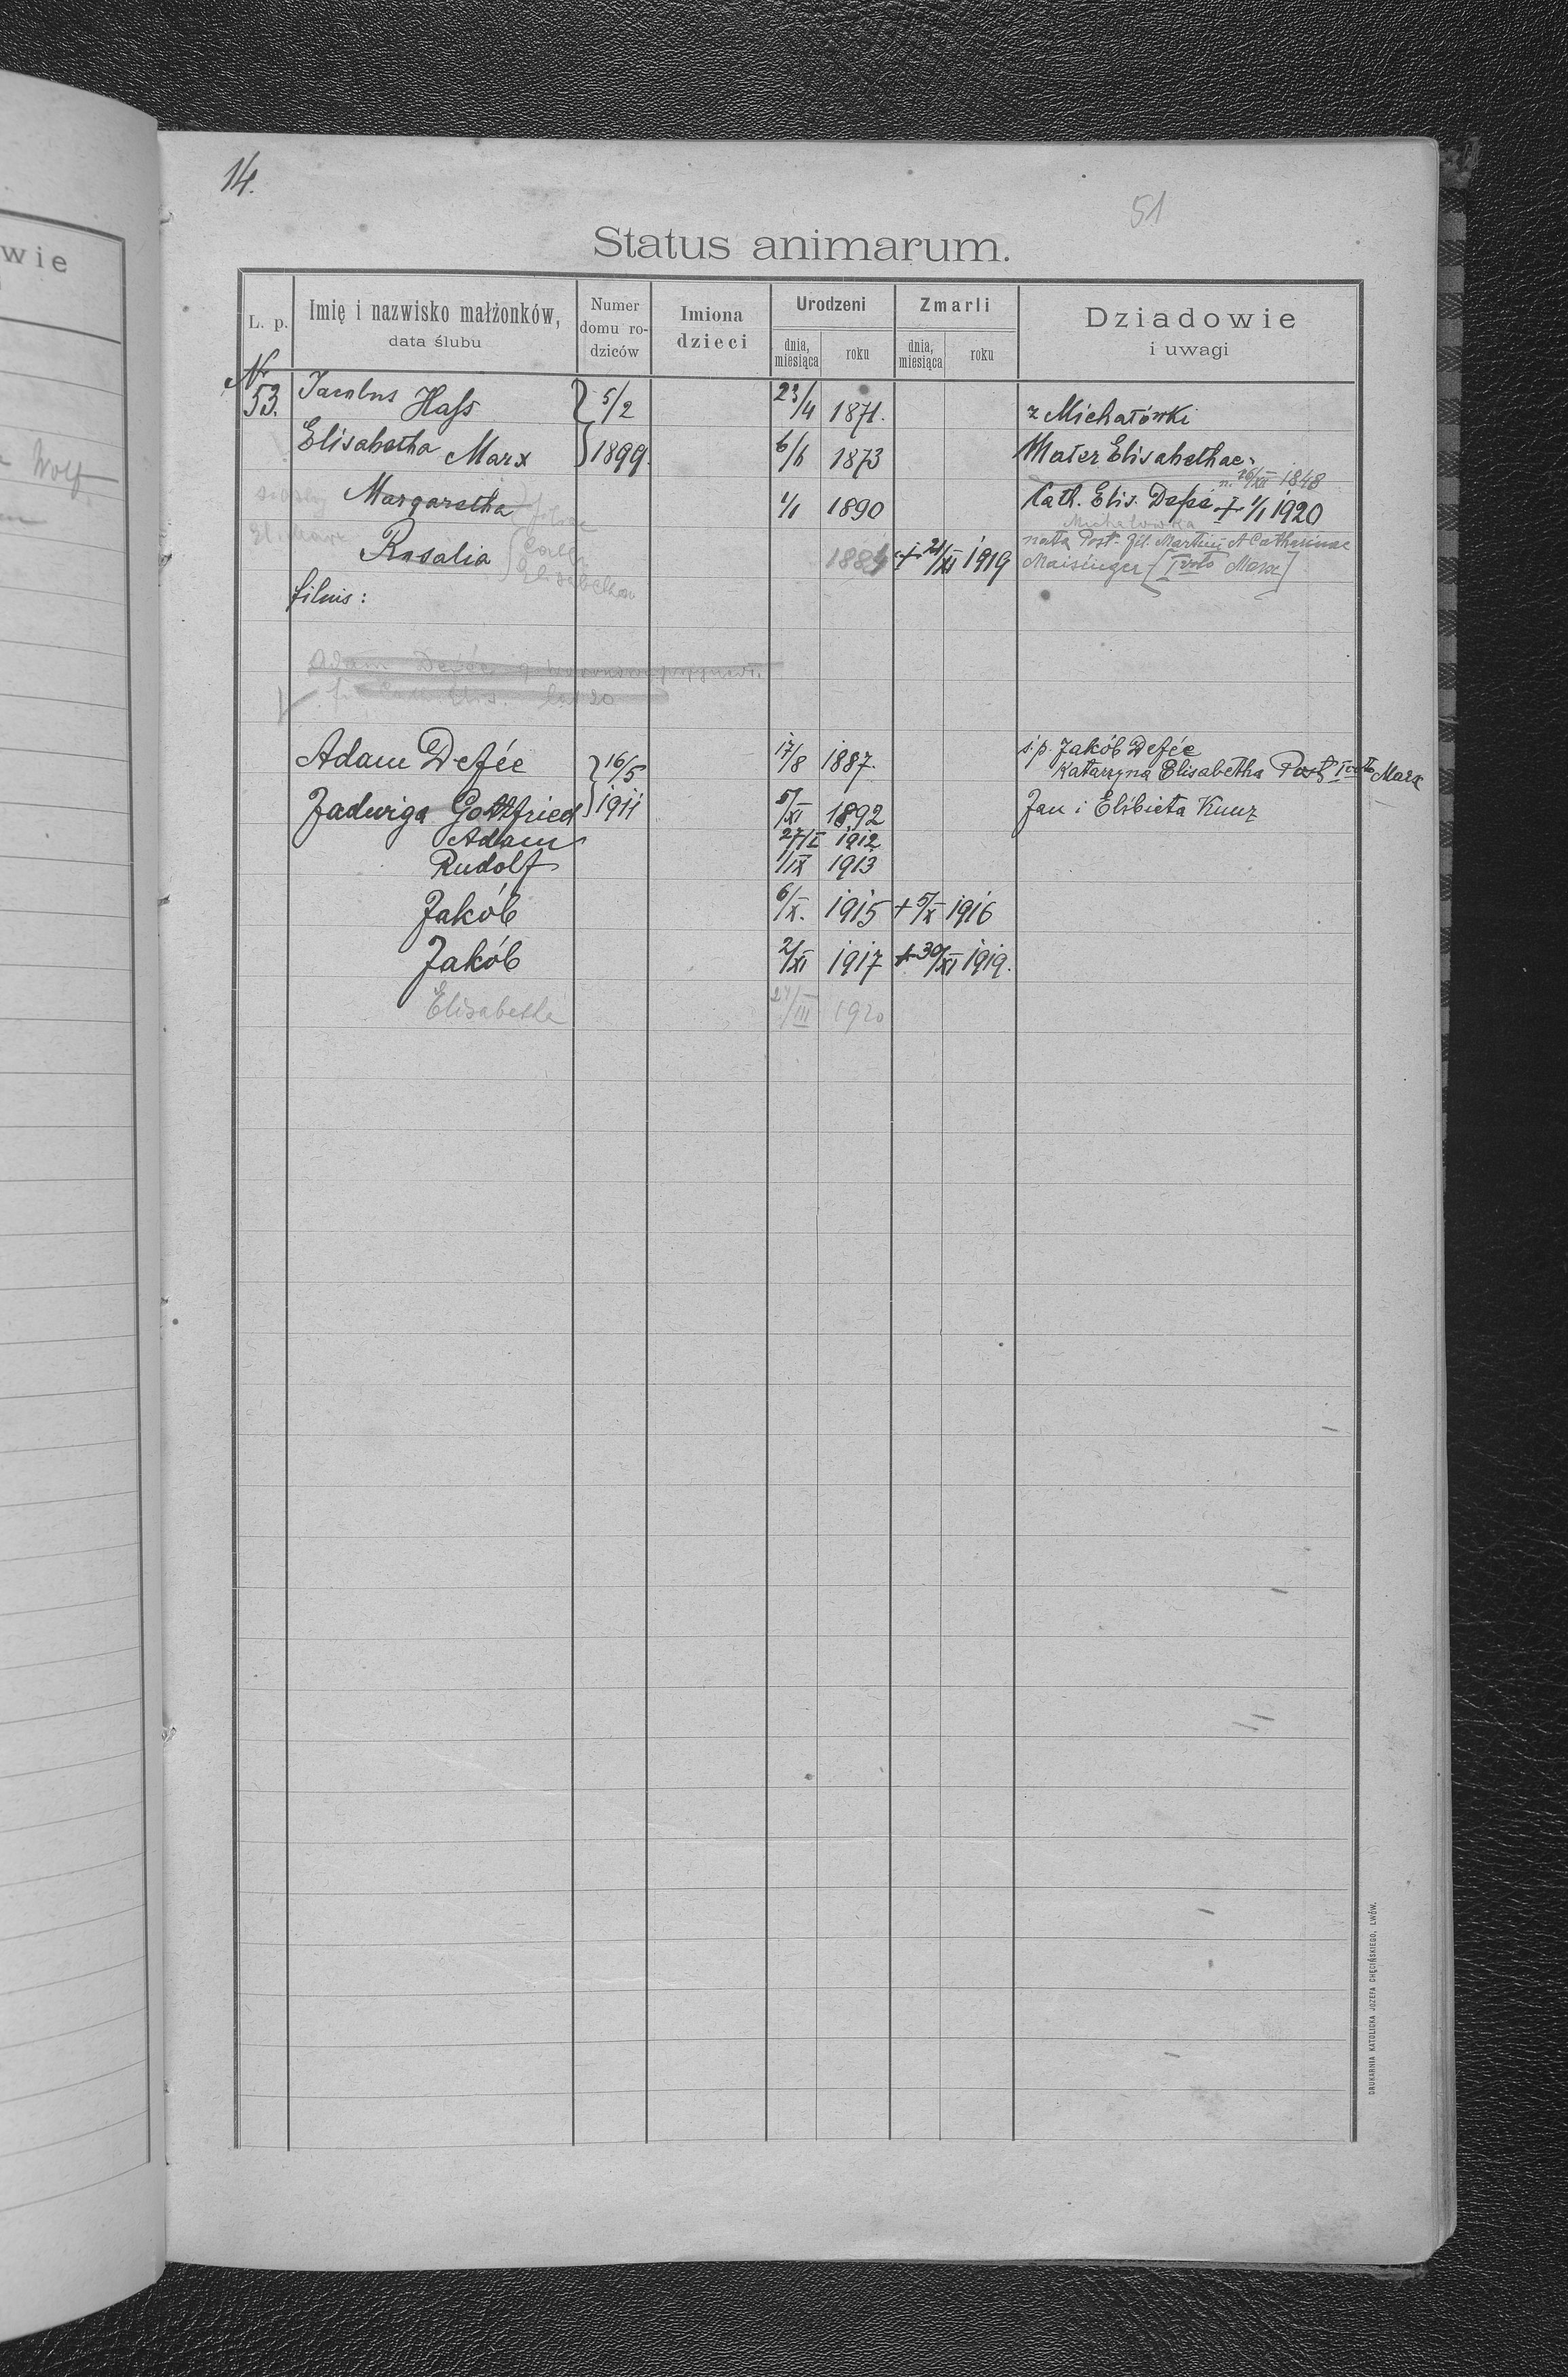 14.
51
Status animarum.
wie
Wolf
L. p.
Imię i nazwisko małżonków,
data ślubu
Numer
domu ro-
dziców
Imiona
dzieci
Urodzeni
dnia,
miesiąca
roku
Zmarli
dnia,
miesiąca
roku
Dziadowie
i uwagi
Nr 53. Jacobus Hass } 5/2 23/4 1871. z Michałówki
Elisabetha Marx } 1899. 6/6 1873 Mater Elisabethae:
n. 26/XII 1848
Margaretha 1/1 1890 Cath. Elis. Defée + 1/1 1920
Michalowka
El. Marx
Rosalia Elisabethae 1884 + 21/XI 1919
nata Post - fil. Martini et Catharinae
Maisinger [I voto Marx]
filius:
Adam Defée
Adam Defée } 16/5 17/8 1887. ś.p. Jakób Defée
Katarzyna Elisabetha Post I voto Marx
Jadwiga Gottfried } 1911 5/XI 1892 Jan i Elżbieta Kunz
Adam 27/I 1912
Rudolf 1/IX 1913
Jakób 6/X. 1915 + 5/X 1916
Jakób 2/XI 1917 + 30/XI 1919.
Elisabetha 24/III 1920
DRUKARNIA KATOLICKA JOZEFA CHĘCIŃSKIEGO, LWÓW.